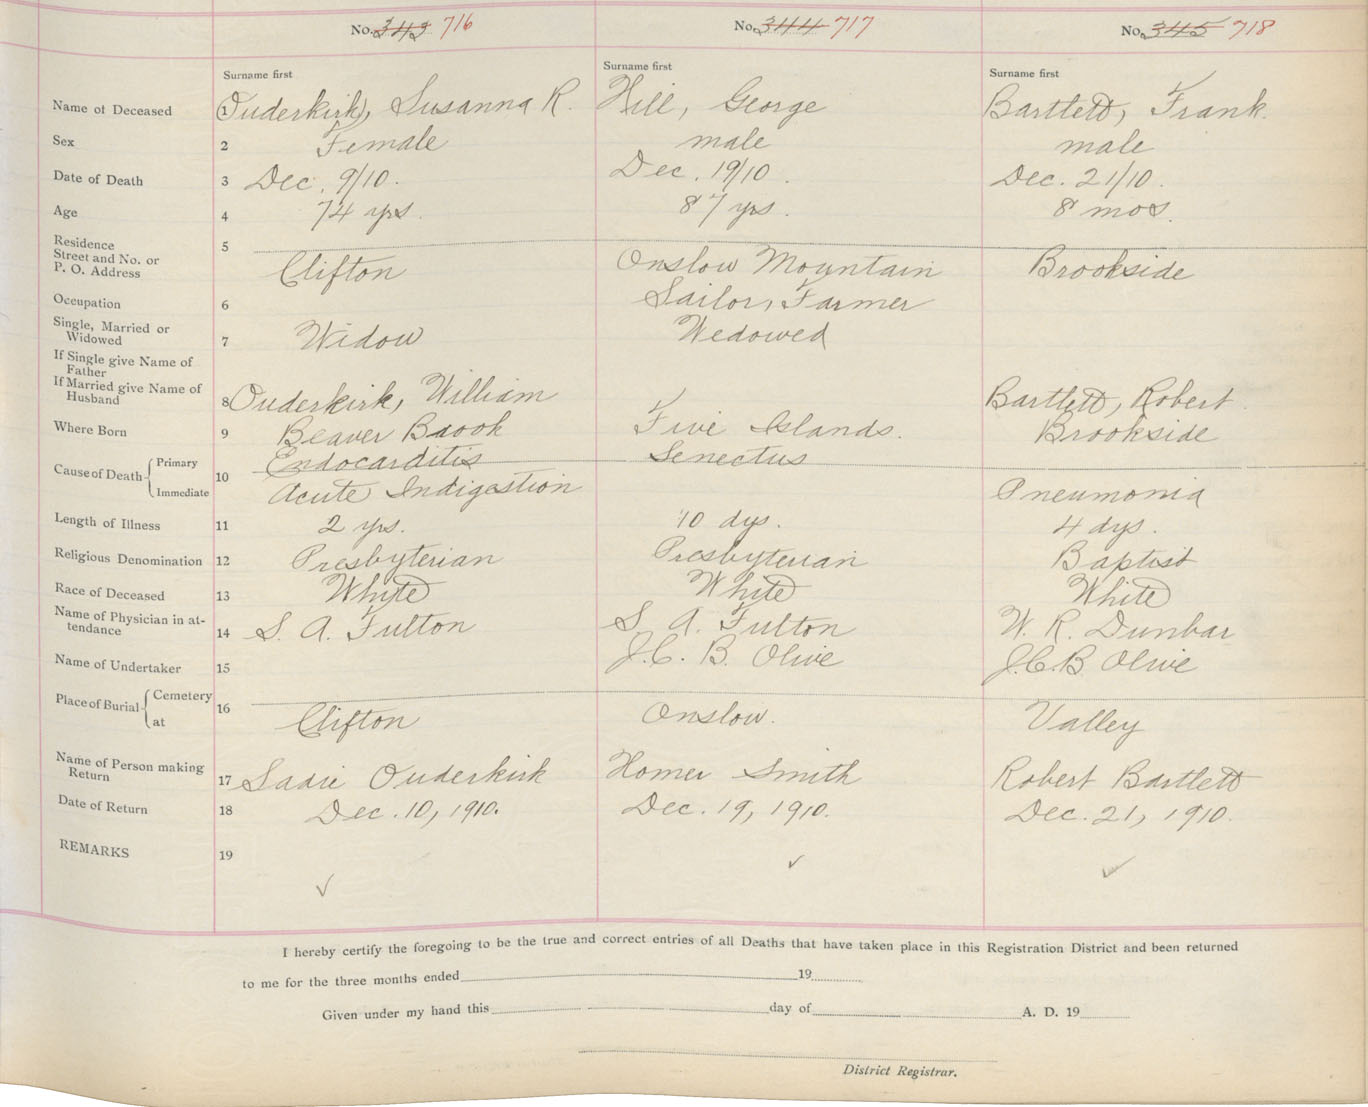 No. 343 716 No. 344 717 No. 345 718
Surname first Surname first Surname first
Name of Deceased 1 Ouderkirk, Susanna R. Hill, George Bartlett, Frank.
Sex 2 Female male male
Date of Death 3 Dec. 9/10. Dec. 19/10. Dec. 21/10.
Age 4 74 yrs. 87 yrs. 8 mos.
Residence 5
Street and No. or
P. O. Address Clifton Onslow Mountain Brookside
Occupation 6 Sailor, Farmer
Single, Married or
Widowed 7 Widow Wedowed
If Single give Name of
Father
If Married give Name of
Husband 8 Ouderkirk, William Bartlett, Robert.
Where Born 9 Beaver Brook Five Islands. Brookside
Cause of Death Primary 10 Endocarditis Senectus
Immediate Acute Indigestion Pneumonia
Length of Illness 11 2 yrs. 10 dys. 4 dys.
Religious Denomination 12 Presbyterian Presbyterian Baptist
Race of Deceased 13 White White White
Name of Physician in at-
tendance 14 S. A. Fulton S. A. Fulton W. R. Dunbar
Name of Undertaker 15 J. C. B. Olive J.C.B Olive
Place of Burial Cemetery 16
at Clifton Onslow. Valley
Name of Person making
Return 17 Sadie Ouderkirk Homer Smith Robert Bartlett
Date of Return 18 Dec. 10, 1910. Dec. 19, 1910. Dec. 21, 1910.
REMARKS 19
✓ ✓ ✓
I hereby certify the foregoing to be the true and correct entries of all Deaths that have taken place in this Registration District and been returned
to me for the three months ended 19
Given under my hand this day of A. D. 19
District Registrar.